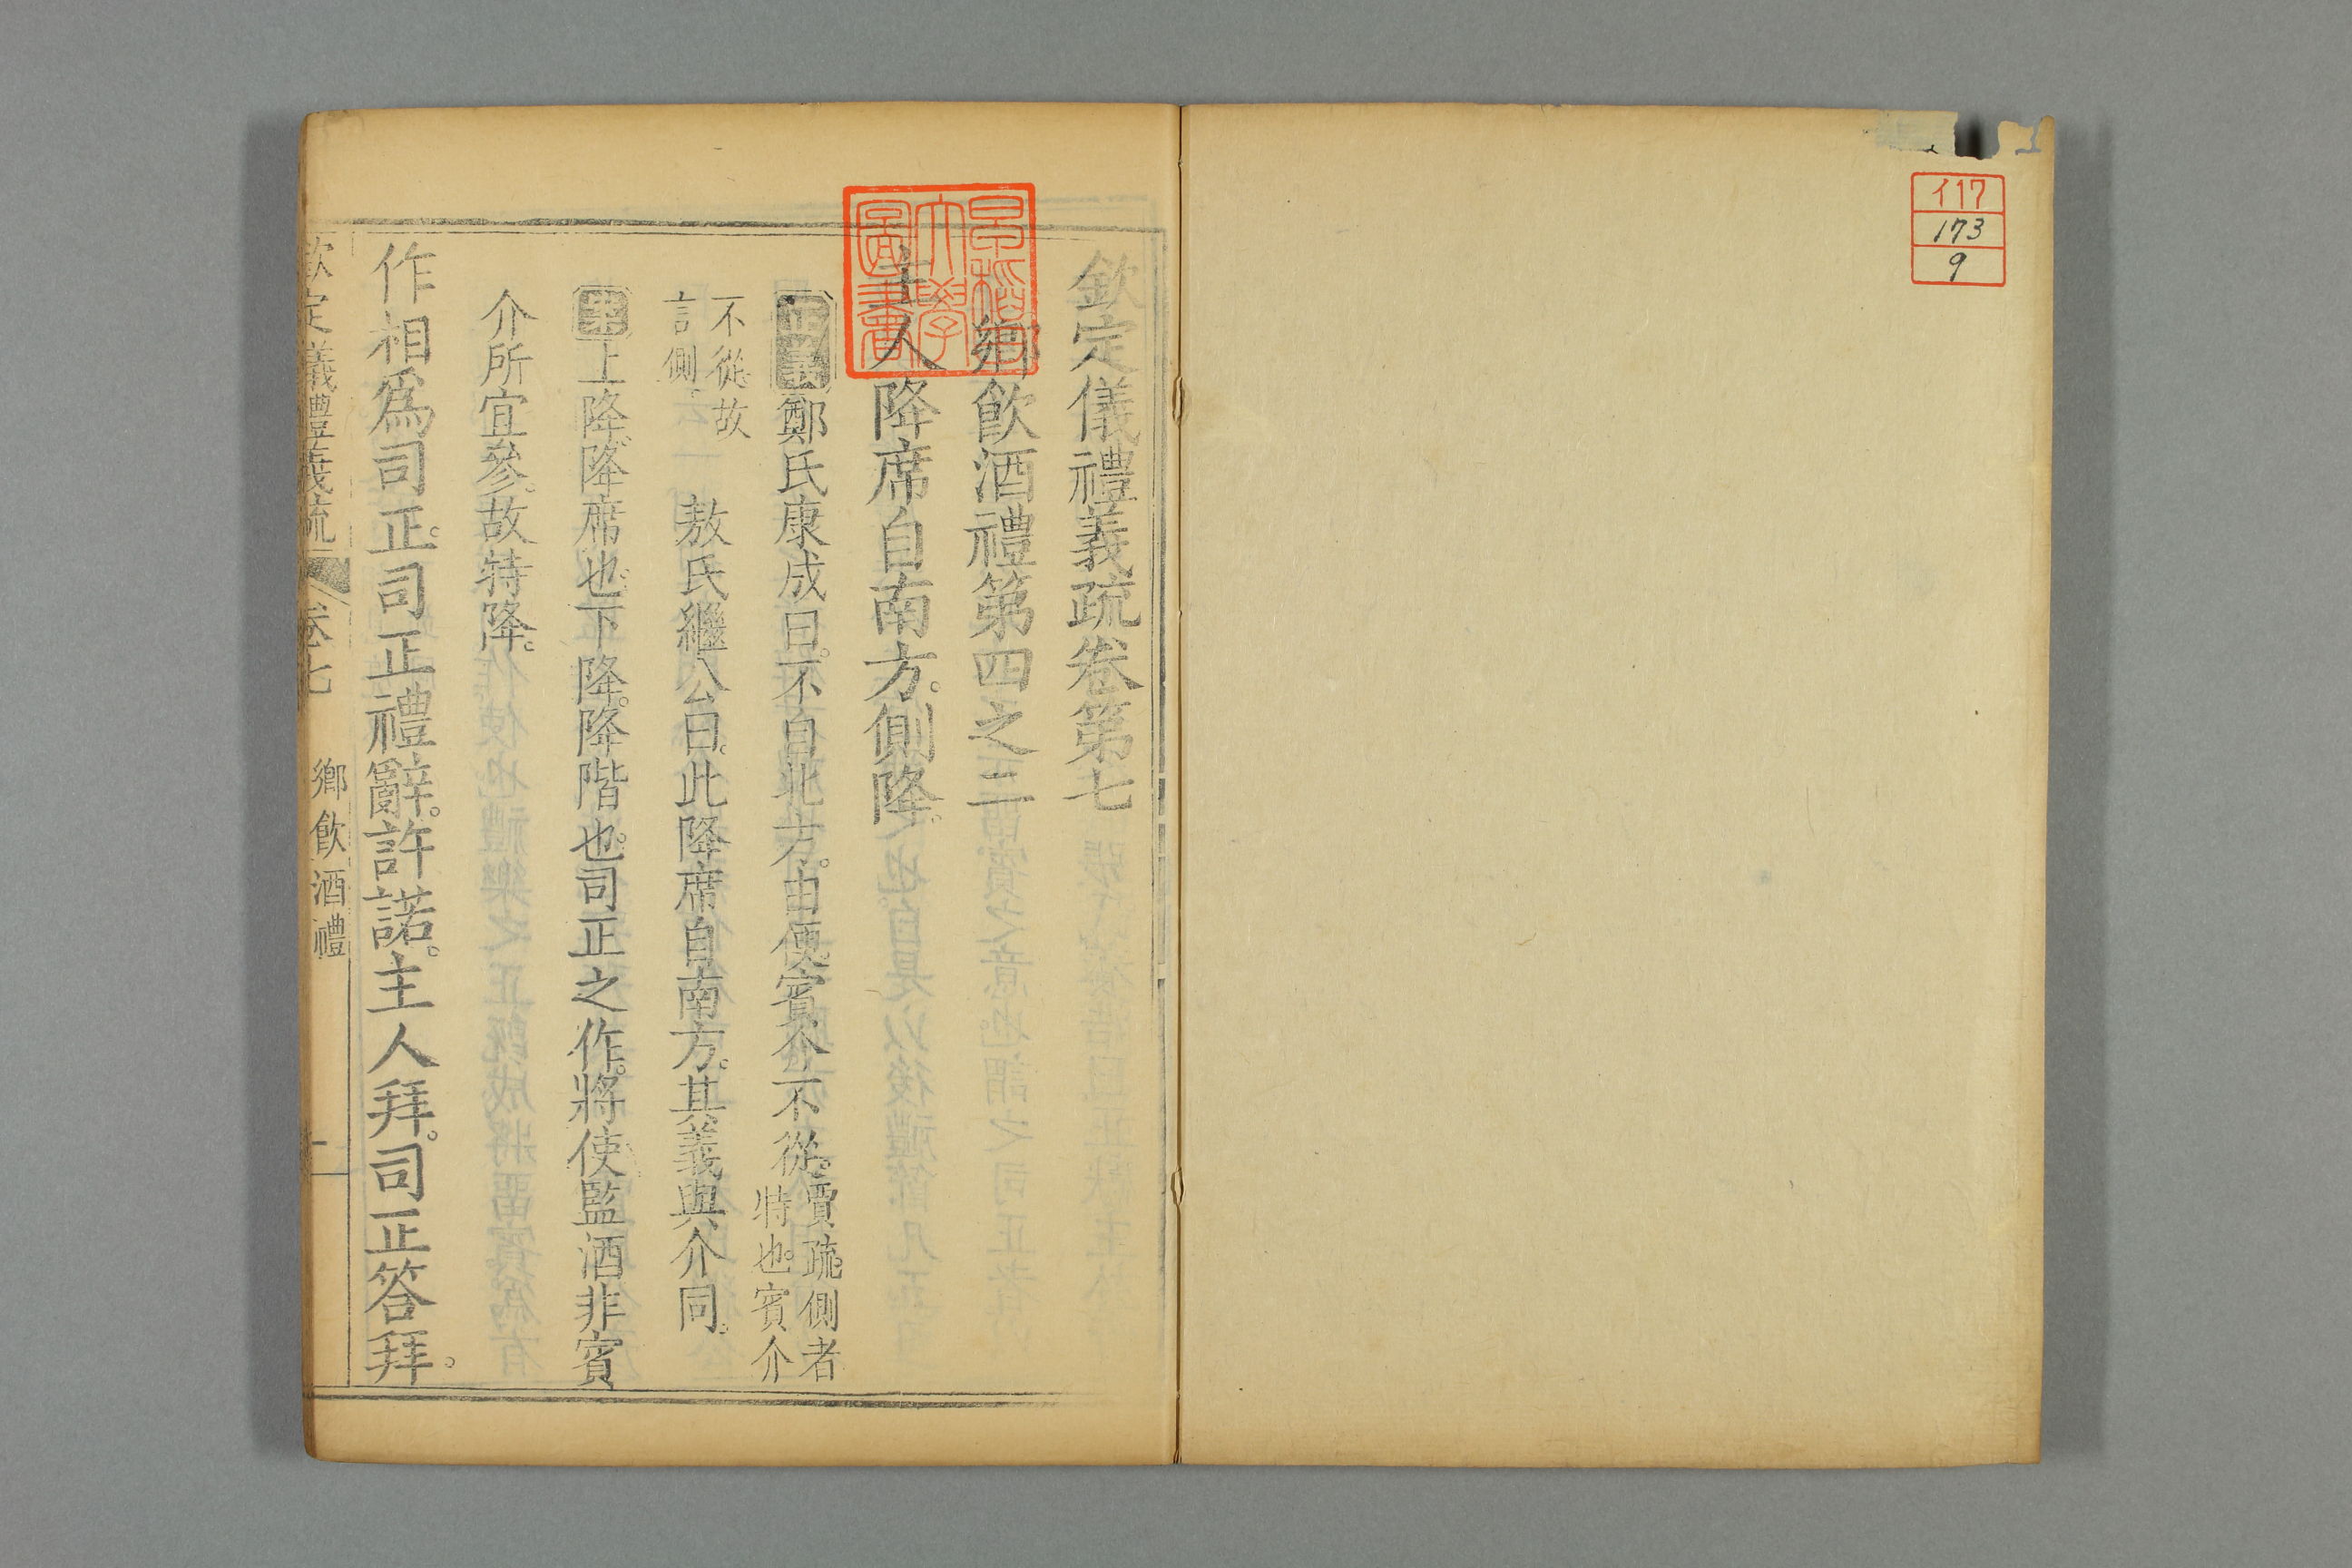 イ17
173
9
欽定儀禮義疏卷第七
鄉飲酒禮第四之二
主人降席自南方。側降。
正義鄭氏康成曰。不自北方。由便。賓介不從。賈疏。側者
特也。賓介
不從。故
言側。
敖氏繼公曰。此降席自南方。其義與介同。
案上降。降席也。下降。降階也。司正之作。將使監酒。非賓
介所宜參。故特降。
作相爲司正。司正禮辭。許諾。主人拜。司正答拜。
欽定儀禮義疏 卷七 鄉飲酒禮 一
早稻田
大學
圖書